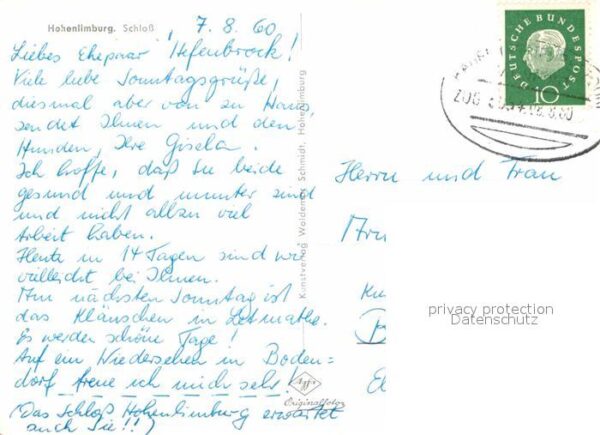 Hohenlimburg. Schloß
7.8.60
Liebes Ehepaar Hefenbrock!
Viele liebe Sonntagsgrüße,
diesmal aber von zu Haus,
sendet Ihnen und den
Hunden, Ihre Gisela.
Ich hoffe, daß Sie beide
gesund und munter sind
und nicht allzu viel
Arbeit haben.
Heute in 14 Tagen sind wir
vielleicht bei Ihnen.
Am nächsten Sonntag ist
das Kläuschen in Letmathe.
Es werden schöne Tage!
Auf ein Wiedersehen in Boden-
dorf freue ich mich sehr!
(Das Schloß Hohenlimburg erwartet
auch Sie!!)
Kunstverlag Waldemar Schmidt, Hohenlimburg
Agfa
Originalfoto
DEUTSCHE BUNDESPOST
10
ZUG
Herrn und Frau
privacy protection
Datenschutz